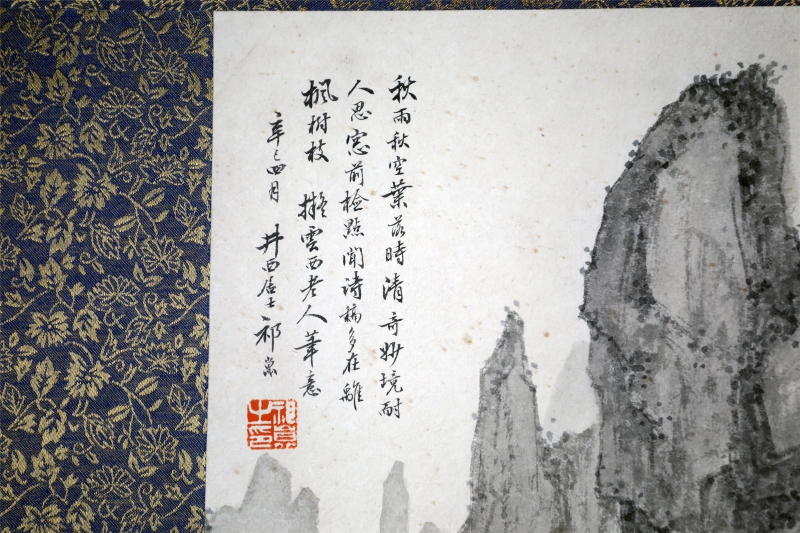 秋雨秋空葉落時清奇妙境耐
人思窓前檢點閒詩稿多在離
楓樹枝 擬雲西老人筆意
辛巳四月 井西居士祁崑
祁崑之印